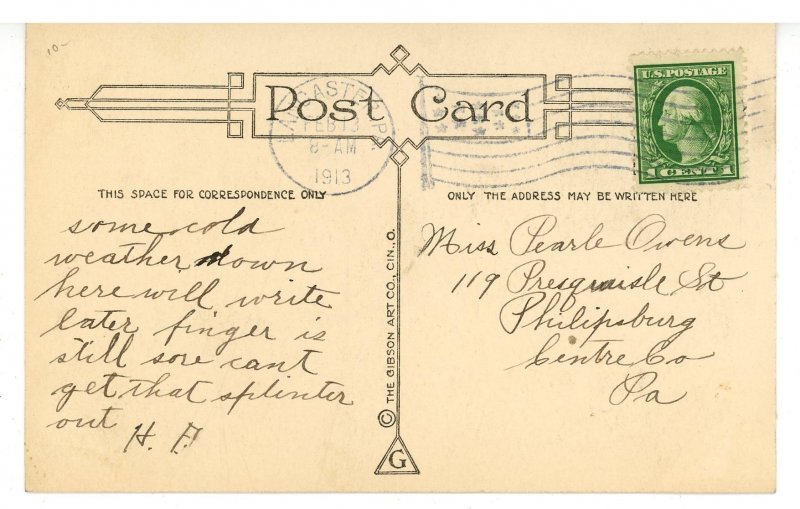 10-
Post Card
U.S. POSTAGE
1 CENT 1
LANCASTER, PA.
FEB 13
8-AM
1913
THIS SPACE FOR CORRESPONDENCE ONLY
ONLY THE ADDRESS MAY BE WRITTEN HERE
some cold
weather down
here will write
later finger is
still sore cant
get that splinter
out
H. F.
© THE GIBSON ART CO., CIN., O.
G
Miss Pearle Owens
119 Presquisle St
Philipsburg
Centre Co
Pa